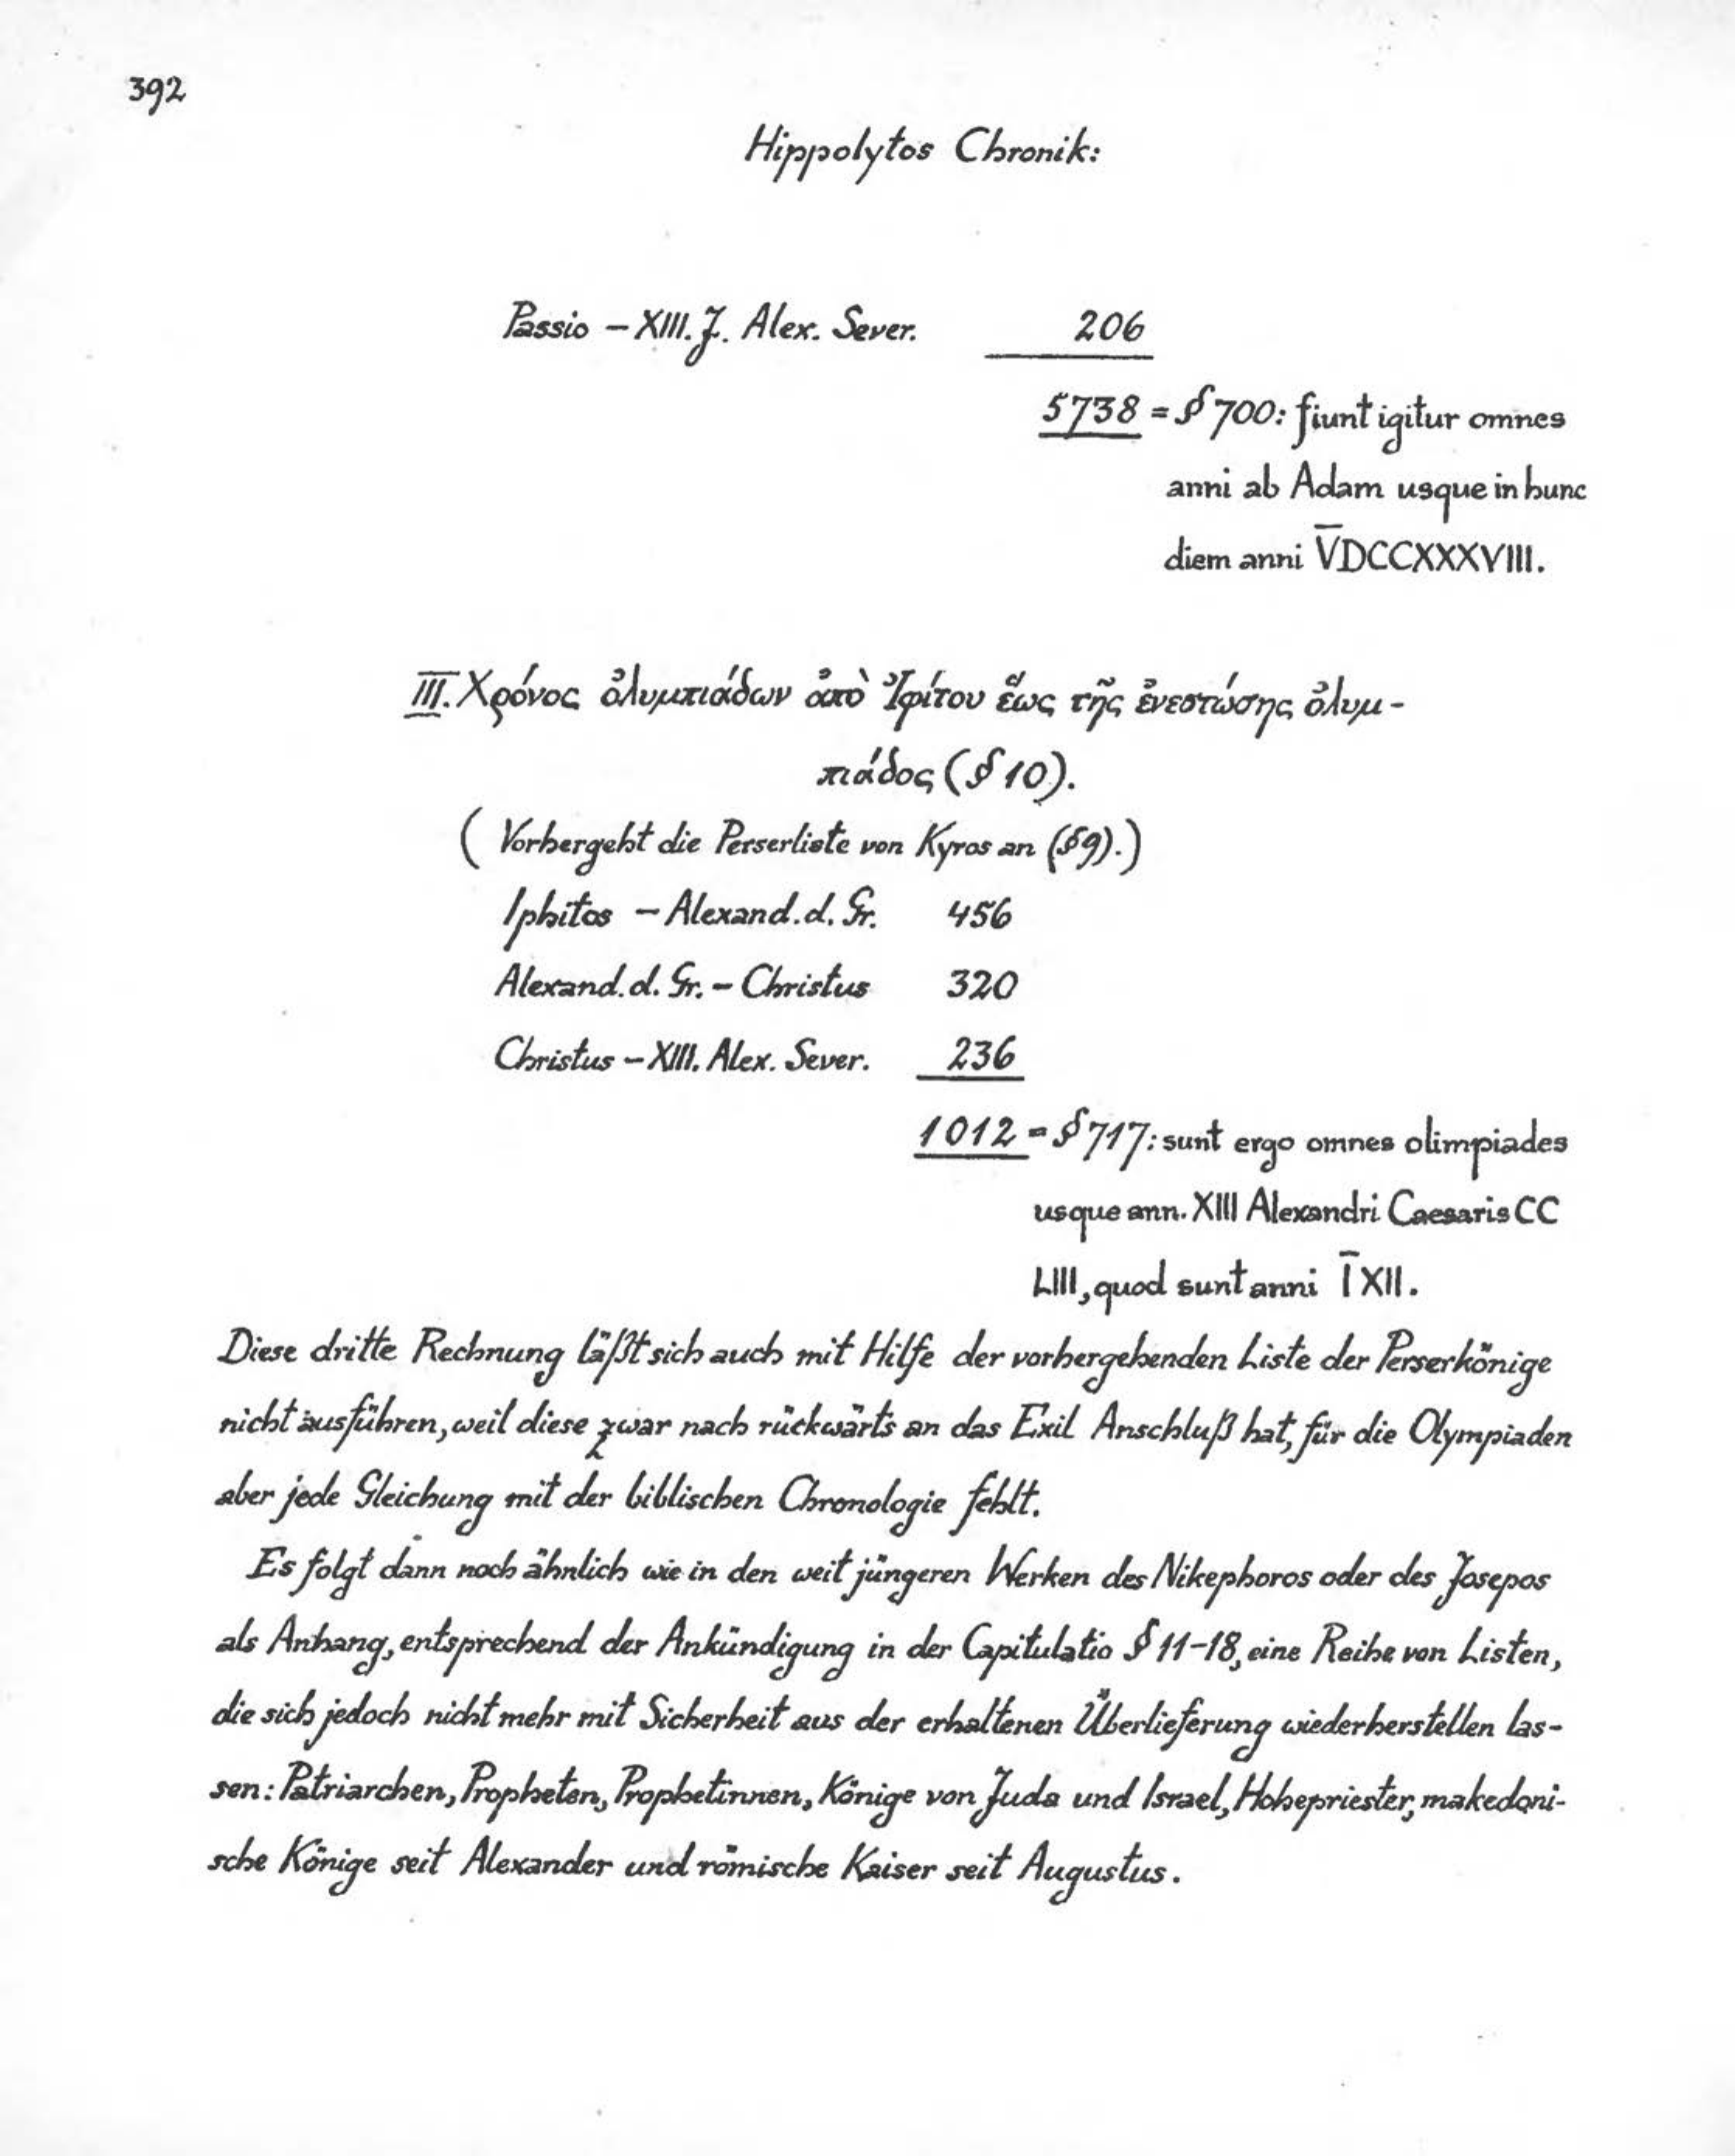 392
Hippolytos Chronik:
Passio – XIII. J. Alex. Sever. 206
5738 = § 700: fiunt igitur omnes
anni ab Adam usque in hunc
diem anni V̅DCCXXXVIII.
III. Χρόνος ὀλυμπιάδων ἀπὸ Ἰφίτου ἕως τῆς ἐνεστώσης ὀλυμ-
πιάδος (§ 10).
( Vorhergeht die Perserliste von Kyros an (§9).)
Iphitos – Alexand. d. Gr. 456
Alexand. d. Gr. – Christus 320
Christus – XIII. Alex. Sever. 236
1012 = § 717: sunt ergo omnes olimpiades
usque ann. XIII Alexandri Caesaris CC
LIII, quod sunt anni I̅XII.
Diese dritte Rechnung läßt sich auch mit Hilfe der vorhergehenden Liste der Perserkönige
nicht ausführen, weil diese zwar nach rückwärts an das Exil Anschluß hat, für die Olympiaden
aber jede Gleichung mit der biblischen Chronologie fehlt.
Es folgt dann noch ähnlich wie in den weit jüngeren Werken des Nikephoros oder des Josepos
als Anhang, entsprechend der Ankündigung in der Capitulatio § 11-18, eine Reihe von Listen,
die sich jedoch nicht mehr mit Sicherheit aus der erhaltenen Überlieferung wiederherstellen las-
sen: Patriarchen, Propheten, Prophetinnen, Könige von Juda und Israel, Hohepriester, makedoni-
sche Könige seit Alexander und römische Kaiser seit Augustus.